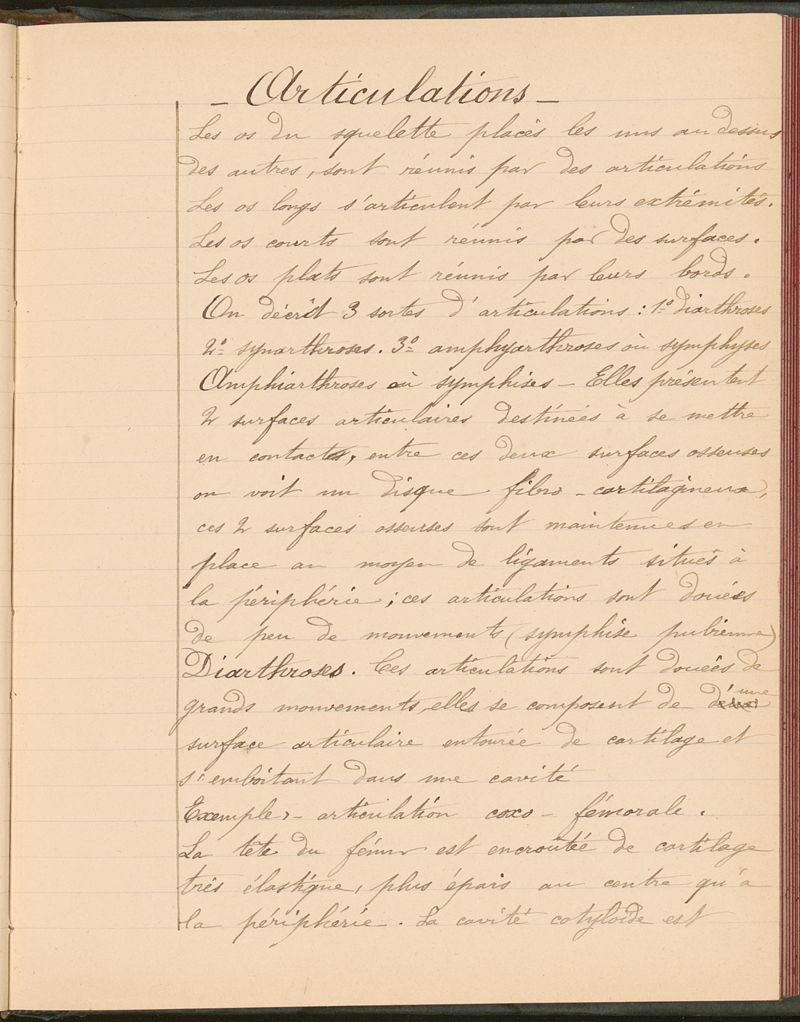 - Articulations -
Les os du squelette placés les uns au dessus
des autres, sont réunis par des articulations
Les os longs s'articulent par leurs extrémités.
Les os courts sont réunis par des surfaces.
Les os plats sont réunis par leurs bords.
On décrit 3 sortes d'articulations : 1º diarthroses
2º synarthroses. 3º amphyarthroses ou symphyses
Amphiarthroses ou symphises - Elles présentent
2 surfaces articulaires destinées à se mettre
en contact, entre ces deux surfaces osseuses
on voit un disque fibro-cartilagineux,
ces 2 surfaces osseuses sont maintenues en
place au moyen de ligaments situés à
la périphérie ; ces articulations sont douées
de peu de mouvements (symphise pubienne)
Diarthroses. Ces articulations sont douées de
grands mouvements, elles se composent de d'une
surface articulaire entourée de cartilage et
s'emboîtant dans une cavité
Exemple, - articulation coxo - fémorale.
La tête du fémur est encroûtée de cartilage
très élastique, plus épais au centre qu'à
la périphérie. La cavité cotyloïde est